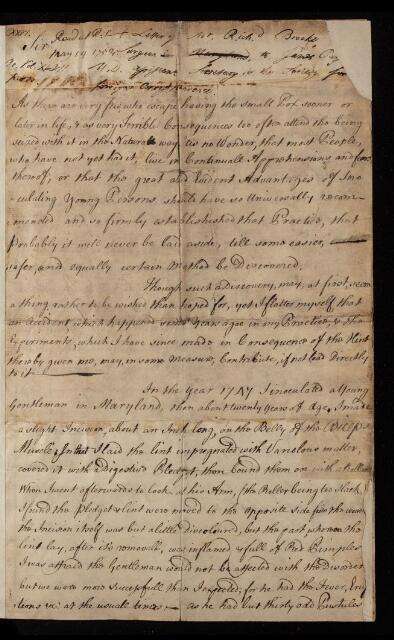 XXVI.
Sir Read at R.S. Letter of Mr. Richd Brooke
May 19 1752
M.D. Secretary to the Society for
As there are very few who escape having the Small Pox sooner or
later in life; & as very Terrible Consequences too often attend the being
seized with it in the Natural way, tis no Wonder, that most People,
who have not yet had it, live in Continuall Apprehensions and fears
thereof, or that the great and Evident Advantages of Ino
culating Young Persons should have so Universally recom
mended and so firmly established that Practice, that
Probably it will never be laid aside, till some easier,
safer, and equally certain Method be Discovered.
Though such a discovery, may, at first, seem
a thing rather to be wished than hoped for, yet I flatter myself that
an accident which happened some Years agoe in my Practice, & the
Experiments, which I have since made in Consequence of the Hint
thereby given me, may, in some Measure, Contribute, if not lead Directly
to it
In the Year 1747 I inoculated a Young
Gentleman in Maryland, then about twenty Years of Age. I made
a slight Incision, about an Inch long, on the Belly of the Biceps
Muscle, In that I laid the lint impregnated with Variolous matter,
covered it with a Digestive Pledget, then bound them on with a Roller
When I went afterwards to look at his Arm, (the Roller being too slack)
I found the Pledget & lint were moved to the opposite side from the wound
the Incision itself was but a little discoloured, but the part, whereon the
lint lay, after its removall, was inflamed & full of Red Pimples
I was affraid the Gentleman would not be affected with the Disorder
but we were more Successfull than I expected; for he had the Fever, Erup
tions &c: at the usuall times as he had but thirty odd Pustules